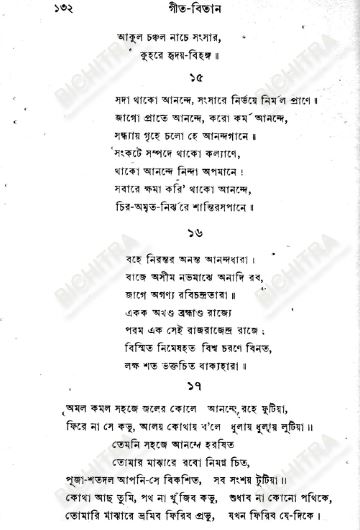 ১৩২
গীত-বিতান
আকুল চঞ্চল নাচে সংসার,
কুহরে হৃদয়-বিহঙ্গ ॥
১৫
সদা থাকো আনন্দে, সংসারে নির্ভয়ে নির্মল প্রাণে ॥
জাগো প্রাতে আনন্দে, করো কর্ম আনন্দে,
সন্ধ্যায় গৃহে চলো হে আনন্দগানে ॥
সংকটে সম্পদে থাকো কল্যাণে,
থাকো আনন্দে নিন্দা অপমানে ।
সবারে ক্ষমা করি' থাকো আনন্দে,
চির-অমৃত-নির্ঝরে শান্তিরসপানে ॥
১৬
বহে নিরন্তর অনন্ত আনন্দধারা ।
বাজে অসীম নভমাঝে অনাদি রব,
জাগে অগণ্য রবিচন্দ্রতারা ॥
একক অখণ্ড ব্রহ্মাণ্ড রাজ্যে
পরম এক সেই রাজরাজেন্দ্র রাজে ;
বিস্মিত নিমেষহত বিশ্ব চরণে বিনত,
লক্ষ শত ভক্তচিত বাক্যহারা ॥
১৭
অমল কমল সহজে জলের কোলে আনন্দে রহে ফুটিয়া,
ফিরে না সে কভু, আলয় কোথায় ব'লে ধূলায় ধূলায় লুটিয়া ॥
তেমনি সহজে আনন্দে হরষিত
তোমার মাঝারে রবো নিমগ্ন চিত,
পূজা-শতদল আপনি-সে বিকশিত, সব সংশয় টুটিয়া ॥
কোথা আছ তুমি, পথ না খুঁজিব কভু, শুধাব না কোনো পথিকে,
তোমারি মাঝারে ভ্রমিব ফিরিব প্রভু, যখন ফিরিব যে-দিকে ।
BICHITRA